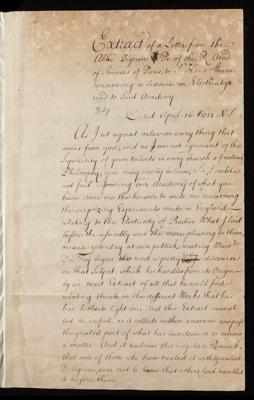 Extract of a Letter from the
Abbé Bignon Pr. of the R. Acad.
of Sciences of Paris, to Sr. Hans Sloane
concerning a discourse on Electricity
read to said Academy.
Dated April 16. 1733 N.S.
As I set a great value on every thing that
comes from you, and as I am not ignorant of the
Superiority of your talents in every branch of natural
Philosophy, you may easily believe, Sr. I could
not fail informing our Academy of what you
have done me the honour to write me concerning
the surprizing Experiments made in England
relating to the Electricity of Bodies. What I laid
before the assembly was the more pleasing to them,
because yesterday at our publick meeting Monsr.
Du Fay began the read a pretty discourse
on that Subject, which he handles from its Origin
by an exact Extract of all that he could find
relating thereto in the different Works that he
has hitherto light on. And this Extract cannot
but be usefull, as it collects within a narrow compass
the greatest part of what has been done in so curious
a matter. And it contains this singular Remark,
that some of those who have treated it with greatest
Diligence, seem not to know that others had handled
it before them.